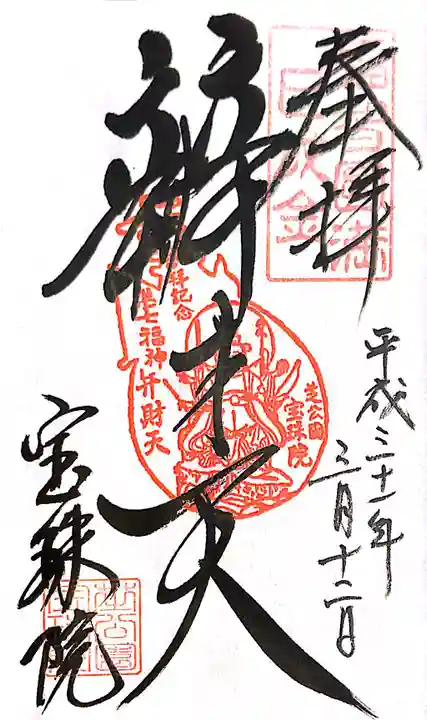 奉拝
平成三十一年
三月十二日
辨才天
参拝記念
七福神弁財天
芝公園
宝珠院
宝珠院